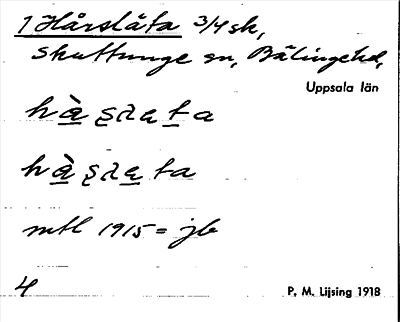 1 Hårslåta 3/4 sk,
Skuttunge sn, Bälingehd,
Uppsala län
mtl 1915 = jb
4
P. M. Lijsing 1918